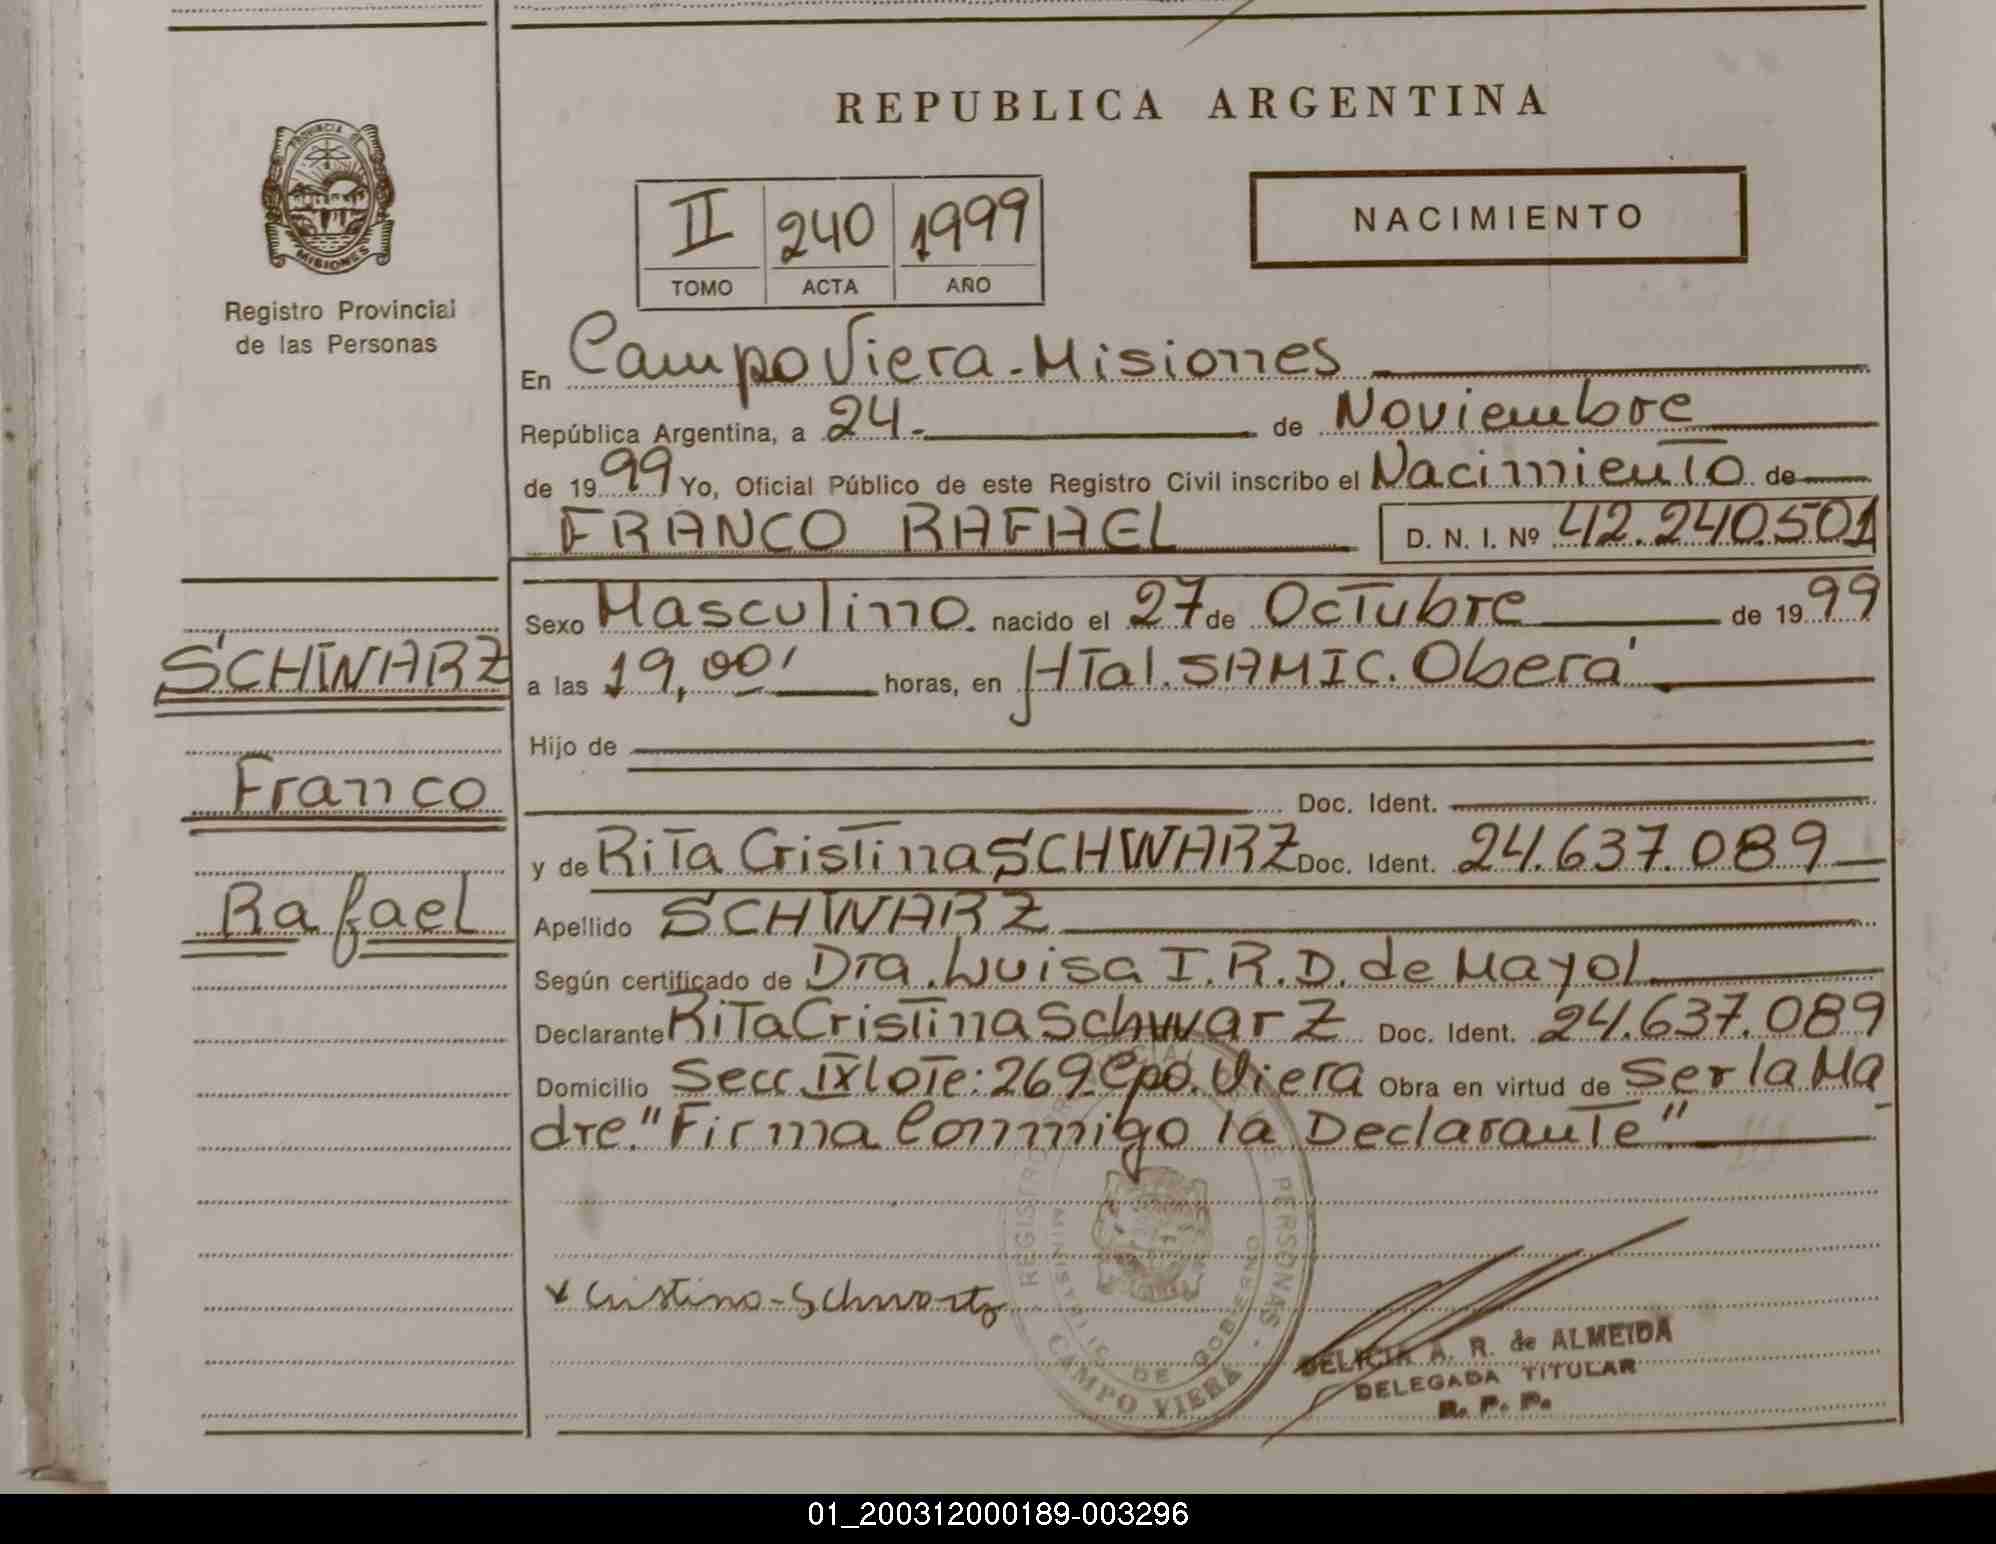 REPUBLICA ARGENTINA
PROVINCIA DE
MISIONES
Registro Provincial
de las Personas
II 240 1999
TOMO ACTA AÑO
NACIMIENTO
En Campo Viera - Misiones
República Argentina, a 24. de Noviembre
de 1999 Yo, Oficial Público de este Registro Civil inscribo el Nacimiento de
FRANCO RAFAEL D. N. I. Nº 42.240.501
SCHWARZ
Franco
Rafael
Sexo Masculino. nacido el 27 de Octubre de 1999
a las 19,00' horas, en Htal. SAMIC. Oberá
Hijo de
Doc. Ident.
y de Rita Cristina SCHWARZ Doc. Ident. 24.637.089
Apellido SCHWARZ
Según certificado de Dra. Luisa I. R. D. de Mayol
Declarante Rita Cristina Schwarz Doc. Ident. 24.637.089
Domicilio Secc. IX lote: 269 Cpo. Viera Obra en virtud de Ser la Ma
dre. "Firma Conmigo la Declarante"
REGISTRO PERSONAS
MINISTERIO DE GOBIERNO
CAMPO VIERA
x Cristina - Schwartz
DELICIA A. R. de ALMEIDA
DELEGADA TITULAR
R. P. P.
01_200312000189-003296